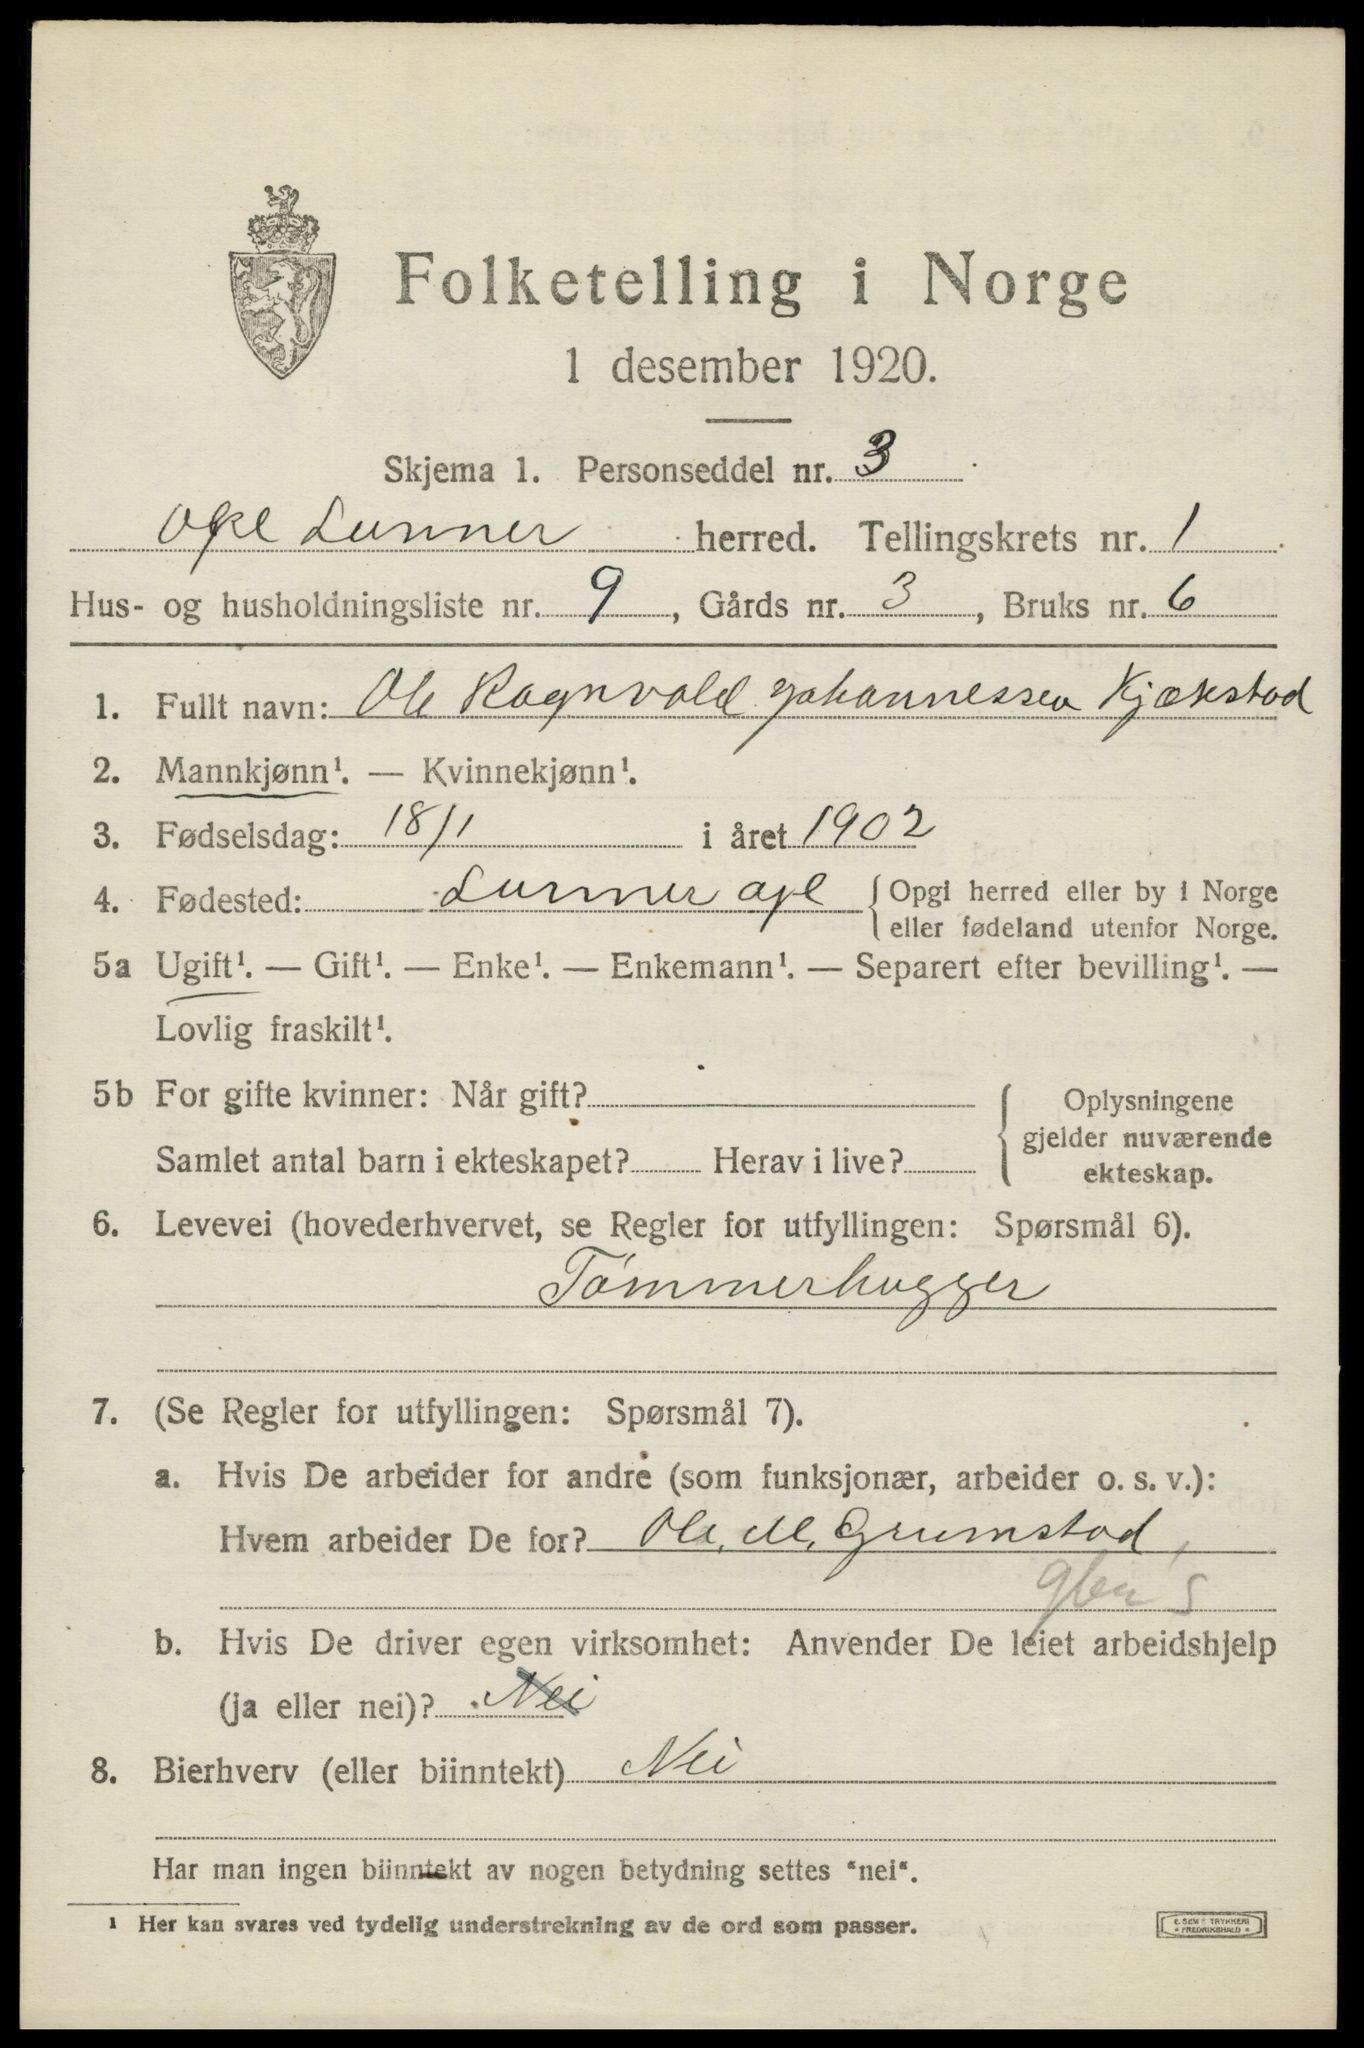 Folketelling i Norge
1 desember 1920.
Skjema 1. Personseddel nr. 3
Opl Lunner herred. Tellingskrets nr. 1
Hus- og husholdningsliste nr. 9, Gårds nr. 3, Bruks nr. 6
1. Fullt navn: Ole Ragnvald Johannessen Kjækstad
2. Mannkjønn¹. — Kvinnekjønn¹.
3. Fødselsdag: 18/1 i året 1902
4. Fødested: Lunner opl { Opgi herred eller by i Norge
eller fødeland utenfor Norge.
5a Ugift¹. — Gift¹. — Enke¹. — Enkemann¹. — Separert efter bevilling¹. —
Lovlig fraskilt¹.
5b For gifte kvinner: Når gift?
Samlet antal barn i ekteskapet? Herav i live?
Oplysningene
gjelder nuværende
ekteskap.
6. Levevei (hovederhvervet, se Regler for utfyllingen: Spørsmål 6).
Tømmerhugger
7. (Se Regler for utfyllingen: Spørsmål 7).
a. Hvis De arbeider for andre (som funksjonær, arbeider o. s. v.):
Hvem arbeider De for? Ole. M. Grumstad,
b. Hvis De driver egen virksomhet: Anvender De leiet arbeidshjelp
(ja eller nei)? Nei
8. Bierhverv (eller biinntekt) Nei
Har man ingen biinntekt av nogen betydning settes "nei".
¹ Her kan svares ved tydelig understrekning av de ord som passer.
E. SEM'S TRYKKERI
FREDRIKSHALD